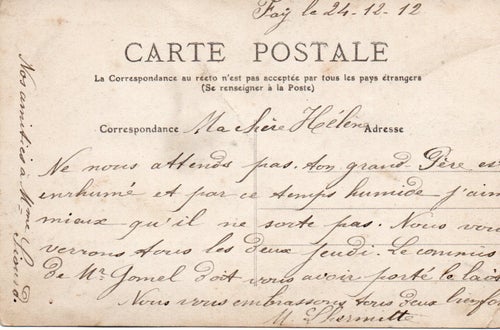 Faÿ le 24-12-12
CARTE POSTALE
La Correspondance au recto n'est pas acceptée par tous les pays étrangers
(Se renseigner à la Poste)
Correspondance Ma chère Hélène Adresse
Ne nous attends pas. ton grand Père est
enrhumé et par ce temps humide j'aime
mieux qu'il ne sorte pas. Nous vous
verrons tous les deux jeudi. Le commis
de Mr Gomel doit vous avoir porté le
Nous vous embrassons tous deux
M. Lhermitte
Nos amitiés à Mme